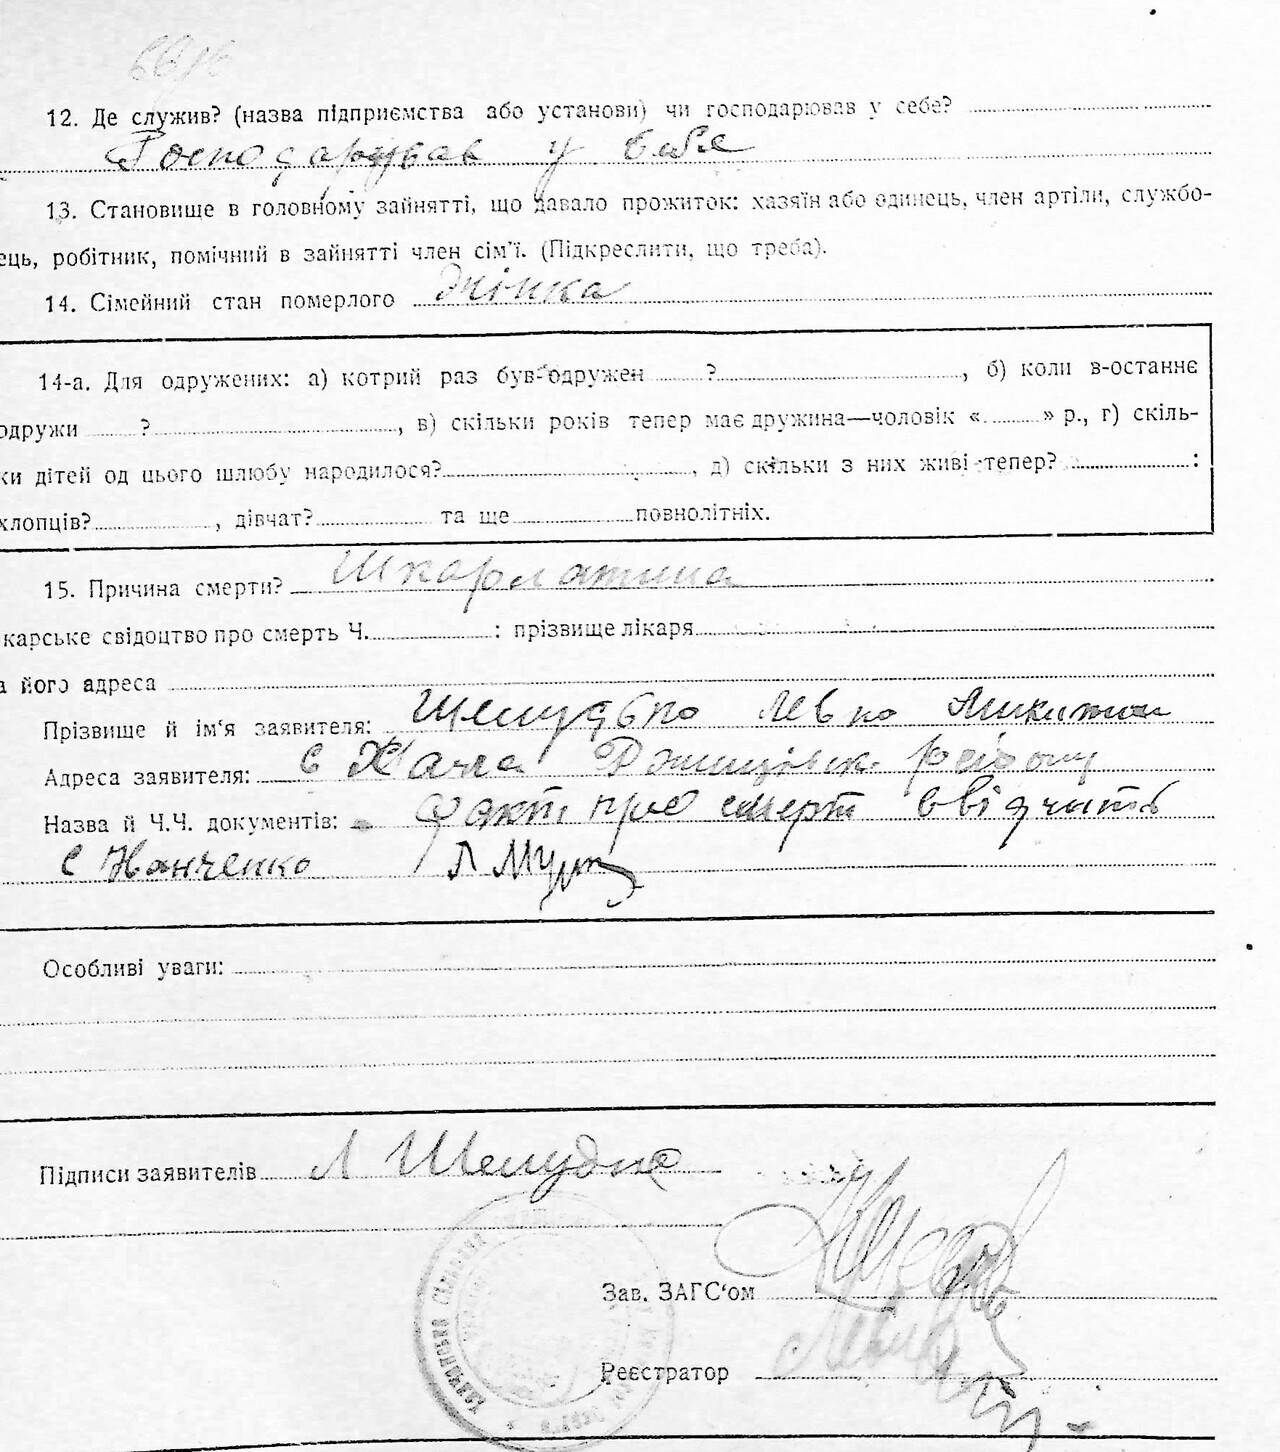 12. Де служив? (назва підприємства або установи) чи господарював у себе?
Господарував у себе
13. Становище в головному зайнятті, що давало прожиток: хазяїн або одинець, член артіли, службо-
ець, робітник, помічний в зайнятті член сім'ї. (Підкреслити, що треба).
14. Сімейний стан померлого Жінка
14-а. Для одружених: а) котрий раз був одружен ?, б) коли в-останнє
одружи ?, в) скільки років тепер має дружина—чоловік « » р., г) скіль-
ки дітей од цього шлюбу народилося?, д) скільки з них живі тепер? :
хлопців?, дівчат? та ще повнолітніх.
15. Причина смерти? Шкарлатина
карське свідоцтво про смерть Ч. : прізвище лікаря
а його адреса
Прізвище й ім'я заявителя: Шелудько Левко
Адреса заявителя: с
Назва й Ч.Ч. документів: факт про смерт
Особливі уваги:
Підписи заявителів Л Шелудко
Зав. ЗАГС‘ом
Реєстратор